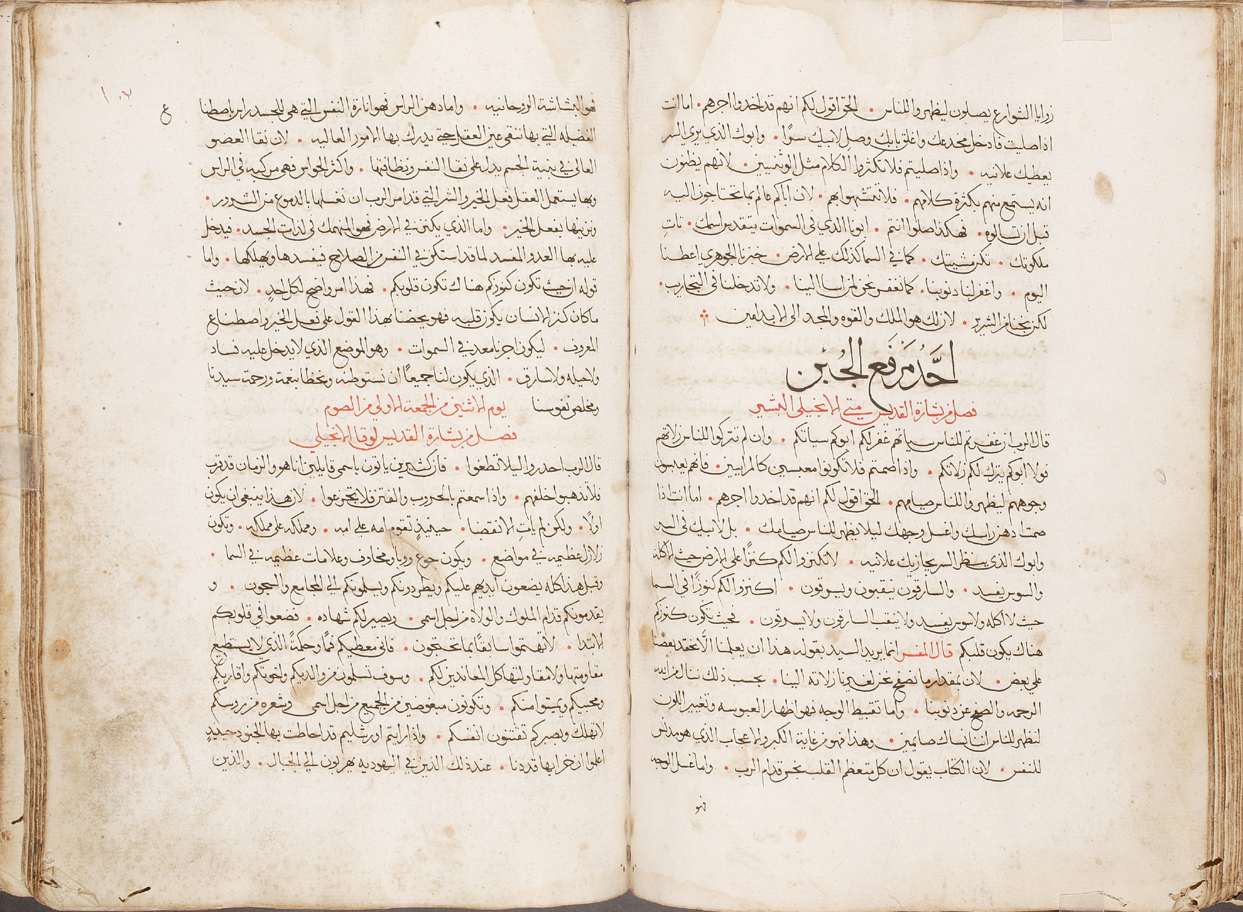 زوايا الشوارع يصلون ليظهروا للناس • الحق اقول لكم انهم قد اخدوا اجرهم • اما انت
اذا صليت فادخل مخدعك واغلق بابك وصل لابيك سرًا • وابوك الذي يرى السر
يعطيك علانيه • واذا صليتم فلا تكثروا الكلام مثل الوثنيين • لانهم يظنون
انه يستمع منهم بكثرة كلامهم • فلا تتشبهوا بهم • لان اباكم عالم بما تحتاجون اليه
قبل ان تسالوه • فهكذا صلوا انتم • ابونا الذي في السموات يتقدس اسمك • تات
ملكوتك • تكن مشيتك • كما في السما كذلك على الارض • خبزنا الجوهري اعطنا
اليوم • واغفر لنا ذنوبنا • كما نغفر نحن لمن اسا الينا • ولا تدخلنا في التجارب •
لكن نجنا من الشرير • لان لك هو الملك والقوه والمجد الى الابد امين
احَّد مرفع الجُبْن
فصل من بشارة القديس متى الانجيلي البشير
قال الرب ان غفرتم للناس سياتهم غفر لكم ابوكم سياتكم • وان لم تتركوا للناس زلاتهم
فولا ابوكم يترك لكم زلاتكم • واذا صمتم فلا تكونوا معبسين كالمرايين • فانهم يعبسون
وجوههم ليظهروا للناس صيامهم • الحق اقول لكم انهم قد اخدوا اجرهم • اما انت اذا
صمت ادهن راسك واغسل وجهك ليلا يظهر للناس صيامك • بل لابيك في السر
وابوك الذي ينظر السر يجازيك علانيه • لا تكنزوا لكم كنزًا على الارض حيث الاكلة
والسوس يفسد • والسارقون ينقبون ويسرقون • اكنزوا لكم كنوزًا في السما
حيث لا اكله ولا سوس يفسد ولا ينقب السارقون ولا يسرقون • فحيث تكون كنوزكم
هناك يكون قلبكم قال المفسر انما يريد السيد بقوله هذا ان يعلمنا الا يحقد بعضنا
على بعض • لان بمقدار ما نصفح نحن لغيرنا زلاته الينا • بحسب ذلك ننال من الله
الرحمه والصفح عن ذنوبنا • واما تقبيط الوجه فهو اظهار العبوسه وتغيير اللون
لنظهر للناس اننا نساك صايمين • وهذا فهو من غاية الكبر والاعجاب الذي هو مدنس
للنفس • لان الكتاب يقول ان كل متعظم القلب نجس قدام الرب • واما غسل الوجه
فهو
ع
فهو البشاشة الروحانيه • واما دهن الراس فهو انارة النفس التي هي للجسد راس باصطناع
الفضله التي بها تنقى عين العقل حتى يدرك بها الامور العاليه • لان نقا العضو
العالي في بنية الجسم يدل على نقا النفس ونظافتها • واكثر الحواس فهي مركبه في الراس
وبها يستعمل العقل فعل الخير والشر التي قد امر الرب ان نغسلها بالدموع من الشرور •
ونزينها بفعل الخير • واما الذي يكنز في الارض فهو المنهمك في لذات الجسد • فيدخل
عليه بها العدو المفسد لما قد استكن في النفس من الصلاح فيفسدها ويهلكها • واما
قوله ان حيث تكون كنوزكم هناك تكون قلوبكم • فهذا امر واضح لكل احد • لان حيث
ما كان كنز الانسان يكون قلبه • فهو يحضنا بهذا القول على فعل الخير واصطناع
المعروف • ليكون اجرنا معدًا في السموات • وهو الموضع الذي لا يدخل عليه فساد
ولا حيله ولا سارق • الذي يكون لنا جميعًا ان نستوطنه ونحظا بنعمة ورحمة سيدنا
ومخلص نفوسنا يوم الاثنين من الجمعة الاولى من الصوم
فصل من بشارة القديس لوقا الانجيلي
قال الرب احدروا ليلا تطغوا • فان كثيرين ياتون باسمي قايلين انا هو والزمان قد قرب
فلا تذهبوا خلفهم • واذا سمعتم بالحروب والفتن فلا تجزعوا • لان هذا ينبغي ان يكون
اولًا • ولكن لم يات الانقضا • حينيذ تقوم امه على امه • ومملكه على مملكه • وتكون
زلازل عظيمه في مواضع • ويكون جوع ووبا ومخاوف وعلامات عظيمه في السما •
وقبل هذا كله يضعون ايديهم عليكم ويطردونكم ويسلمونكم الى المجامع والسجون • و
يقدمونكم قدام الملوك والولاه من اجل اسمي • ويصير لكم شهاده • فضعوا في قلوبكم
الا تهتموا سابقًا بما تحتجون • فاني معطيكم فمًا وحكمةً الذي لا يستطيع
مقاومتها ولا مقاولتها كل المعاندين لكم • وسوف تسلمون من والديكم واخوتكم واقاربكم
ومحبيكم ويميتوا منكم • وتكونون مبغوضين من الجميع من اجل اسمي وشعره من رووسكم
لا تهلك وبصبركم تقتنون انفسكم • واذا رايتم اورشليم قد احاطت بها الجنود حينيذ
اعلموا ان خرابها قد دنا • عند ذلك الذين في اليهوديه يهربون الى الجبال • والذين